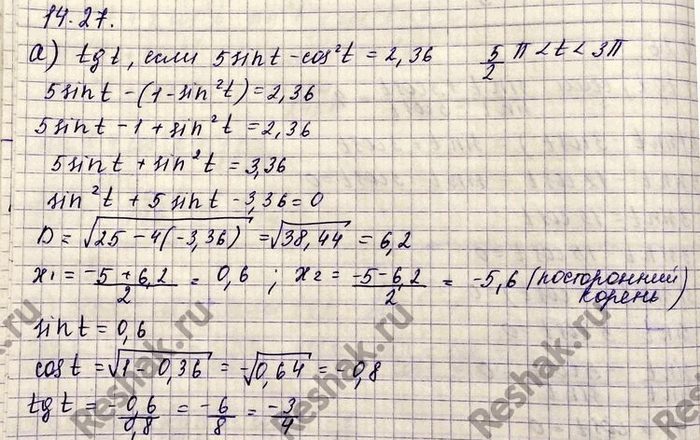 14.27.
а) tg t, если 5 sin t - cos²t = 2,36    5/2 π < t < 3π
5 sin t - (1 - sin²t) = 2,36
5 sin t - 1 + sin²t = 2,36
5 sin t + sin²t = 3,36
sin²t + 5 sin t - 3,36 = 0
D = √(25 - 4(-3,36)) = √38,44 = 6,2
x₁ = (-5 + 6,2)/2 = 0,6 ; x₂ = (-5 - 6,2)/2 = -5,6 (посторонний корень)
sin t = 0,6
cos t = √(1 - 0,36) = -√0,64 = -0,8
tg t = 0,6/0,8 = -6/8 = -3/4
Reshak.ru
Reshak.ru
Reshak.ru